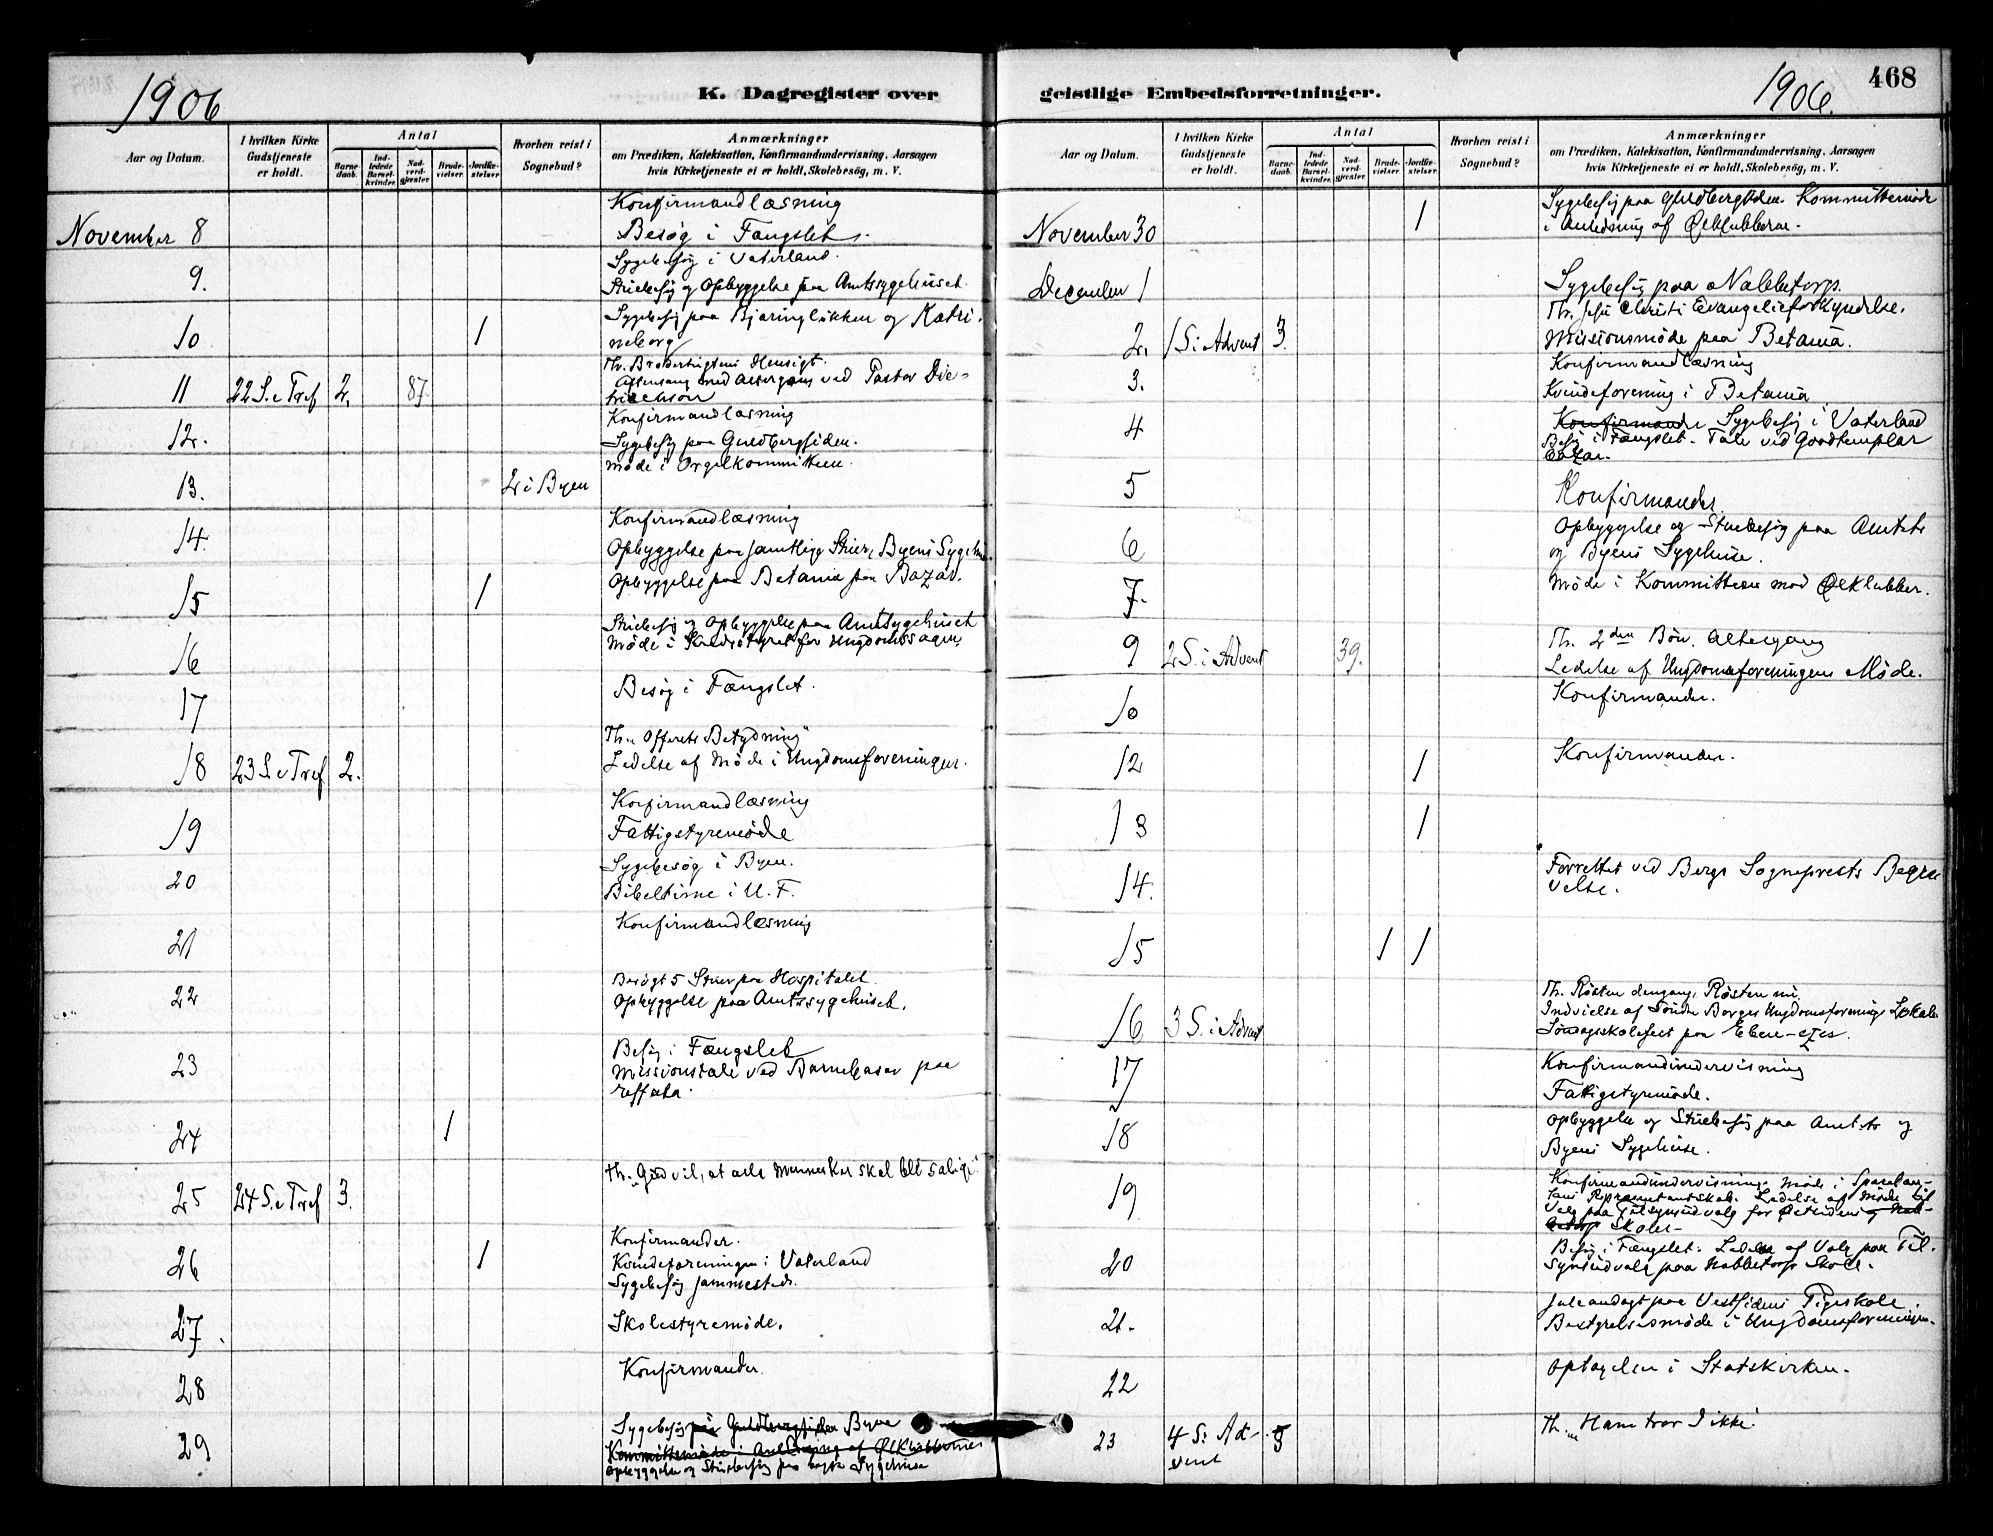 1906
K. Dagregister over
Aar og Datum.
I hvilken Kirke
Gudstjeneste
er holdt.
Antal
Barne-
daab.
Ind-
ledede
Barsel-
kvinder.
Nad-
verd-
gjæster.
Brude-
vielser.
Jordfæ-
stelser
Hvorhen reist i
Sognebud?
Anmærkninger
om Prædiken, Katekisation, Konfirmandundervisning, Aarsagen
hvis Kirketjeneste ei er holdt, Skolebesøg, m. V.
Konfirmandlæsning
November 8
Besøg i Fængslet.
Sygebesøg i Vaterland.
9.
Stuebesøg og Opbyggelse paa Amtssygehuset.
Sygebesøg paa Bjøringløkken og Katri-
10 1 neborg
Th. Hensigt.
med Altergang ved Pastor Die-
11 22 S. e Tref 2. 87
trichson
Konfirmandlæsning
12. Sygebesøg paa Guldbergsiden.
Møde i Orgelkommitteen.
13. 2 i Byen
Konfirmandlæsning
14. Opbyggelse paa samtlige Stuer, Byens Sygehus
Opbyggelse paa Betania paa Bazar.
15 1
Stuebesøg og Opbyggelse paa Amtssygehuset
Møde i Kredsstyret for Ungdomssagen.
16
Besøg i Fængslet.
17
Th. "Offerets Betydning"
18 23 S. e Tref 2. Ledelse af Møde i Ungdomsforeningen.
Konfirmandlæsning
19 Fattigstyremøde
Sygebesøg i Byen.
20 Bibeltime i U. F.
Konfirmandlæsning
21
Besøgt 5 Stuer paa Hospitalet.
22 Opbyggelse paa Amtssygehuset.
Besøg i Fængslet
23 Missionstale ved Barnebasar paa
24 1
Th. "Gud vil, at alle Mennesker skal blt salige"
25 24 S. e Tref 3.
Konfirmander.
26 1 Kvindeforeningen i Vaterland
Sygebesøg sammesteds.
27. Skolestyremøde.
Konfirmander.
28
Sygebesøg paa Guldbergsiden Byen
29 Kommittemøde i Anledning af Ølklubberne
Opbyggelse og Stuebesøg paa begge Sygehuse
geistlige Embedsforretninger.
1906.
468
Aar og Datum.
I hvilken Kirke
Gudstjeneste
er holdt.
Antal
Barne-
daab.
Ind-
ledede
Barsel-
kvinder.
Nad-
verd-
gjæster.
Brude-
vielser.
Jordfæ-
stelser.
Hvorhen reist i
Sognebud?
Anmærkninger
om Prædiken, Katekisation, Konfirmandundervisning, Aarsagen
hvis Kirketjeneste ei er holdt, Skolebesøg, m. V.
Sygebesøg paa Guldbergsiden. Kommittemøde
November 30 1 i Anledning af Ølklubberne.
December 1 Sygebesøg paa Nabbetorp.
Th. Jesu Christi Evangelieforkyndelse.
2. 1 S. i Advent 3. Missionsmøde paa Betania.
Konfirmandlæsning
3. Kvindeforening i Betania
4 Konfirmander Sygebesøg i Vaterland
Besøg i Fængslet. Tale ved Goodtemplar
Bazar.
5 Konfirmander.
Opbyggelse og Stuebesøg paa Amtets
6 og Byens Sygehuse.
7. Møde i Kommitteen mod Ølklubber.
Th. 2den Bøn. Altergang
9 2 S. i Advent 39. Ledelse af Ungdomsforeningens Møde.
Konfirmander.
10
12 1 Konfirmander.
13 1
Forrettet ved Bergs Sogneprests Begra
14. velse.
15 1 1
Th. Røsten dengang, Røsten nu.
Indvielse af Søndre Borges Ungdomsforenings Lokale
16 3 S. i Advent Søndagsskolefest paa Eben-ezer.
Konfirmandundervisning
17 Fattigstyremøde.
Opbyggelse og Stuebesøg paa Amtets og
18 Byens Sygehuse.
Konfirmandundervisning. Møde i Spareban-
19 kens Repræsentantskab. Ledelse af Møde til
Valg paa Tilsynsudvalg for Østsidens og Nab-
betorp Skoler-
Besøg i Fængslet. Ledelse af Valg paa Til-
20 synsudvalg paa Nabbetorp Skole.
Juleandagt paa Vestsidens Pigeskole.
21. Bestyrelsesmøde i Ungdomsforeningen.
Optagelse i Statskirken.
22
Th. "Ham tror I ikke"
23 4 S. i Ad- 5
vent